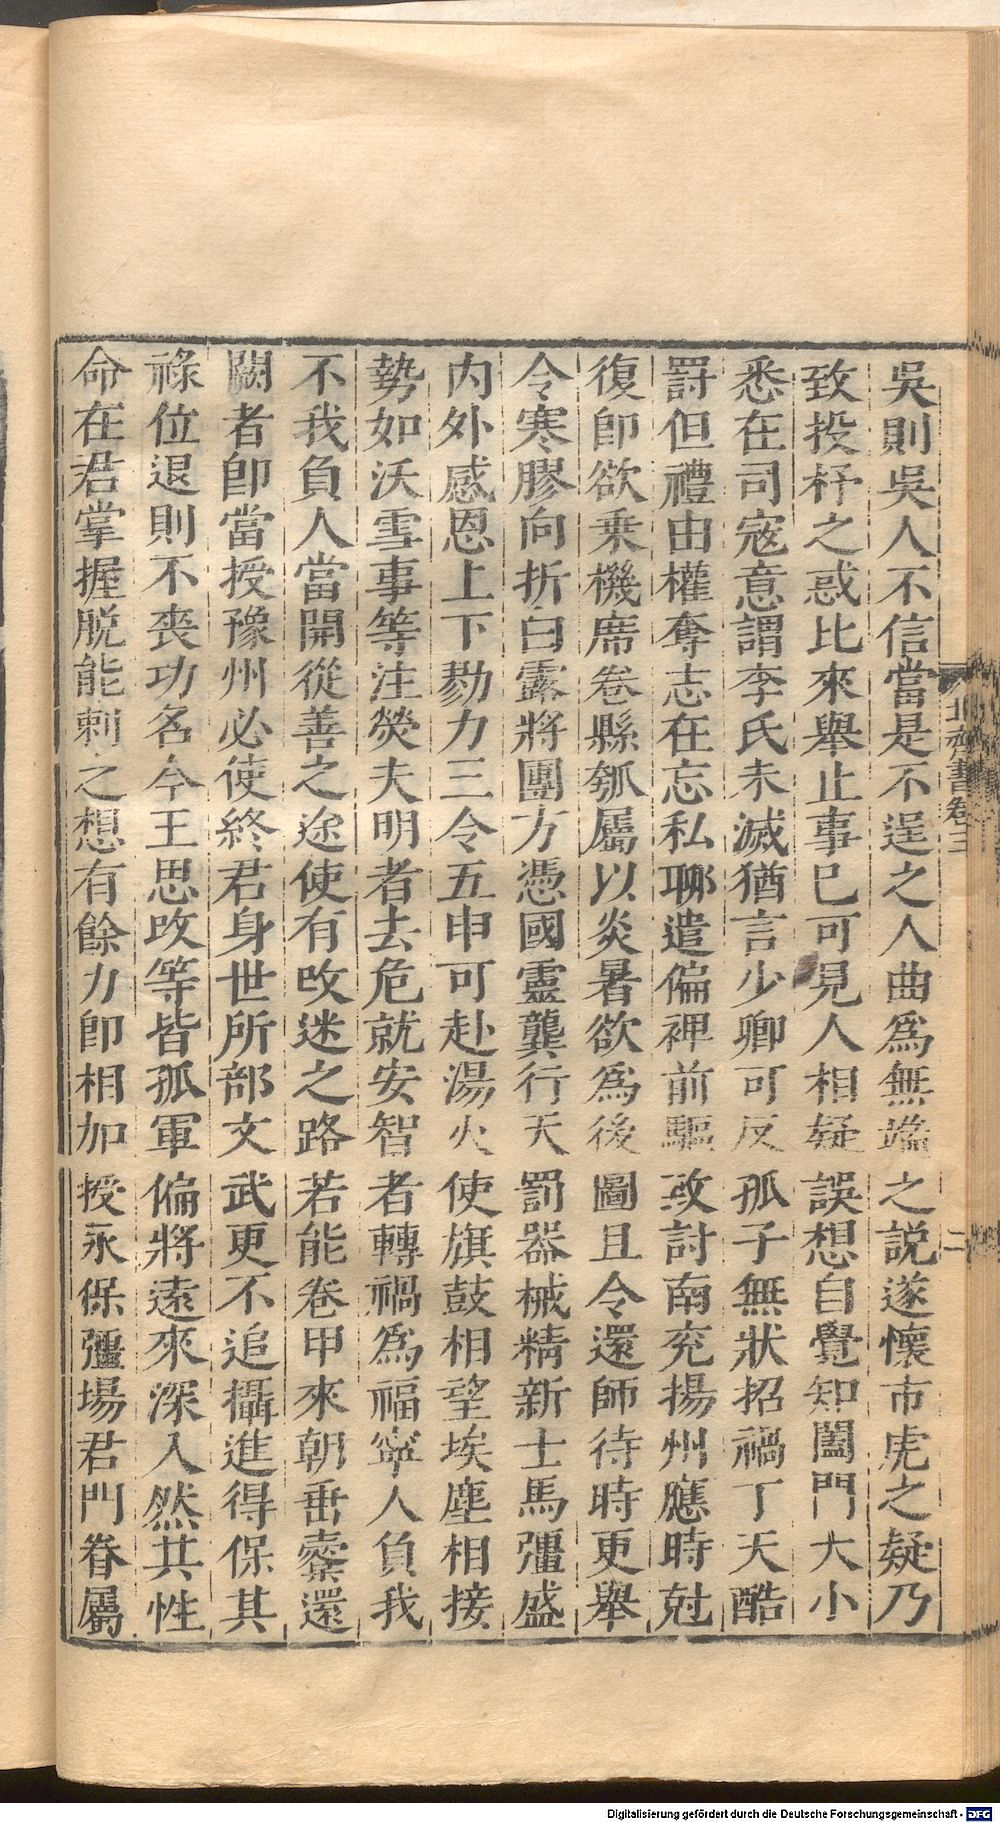 吳則吳人不信當是不逞之人曲爲無端之說遂懷市虎之疑乃
致投杼之惑比來舉止事已可見人相疑誤想自覺知闔門大小
悉在司寇意謂李氏未滅猶言少卿可反孤子無狀招禍丁天酷
罰但禮由權奪志在忘私聊遣偏裨前驅致討南兖揚州應時尅
復卽欲乗機席卷縣瓠屬以炎暑欲爲後圖且令還師待時更舉
令寒膠向折白露將團方憑國靈龔行天罰器械精新士馬彊盛
内外感恩上下勠力三令五申可赴湯火使旗鼓相望埃塵相接
勢如沃雪事等注熒夫明者去危就安智者轉禍爲福寧人負我
不我負人當開從善之途使有改迷之路若能卷甲來朝垂櫜還
闕者卽當授豫州必使終君身世所部文武更不追攝進得保其
祿位退則不喪功名今王思政等皆孤軍偏將遠來深入然其性
命在君掌握脱能刺之想有餘力卽相加授永保彊場君門眷屬
北齊書卷三
二
Digitalisierung gefördert durch die Deutsche Forschungsgemeinschaft - DFG